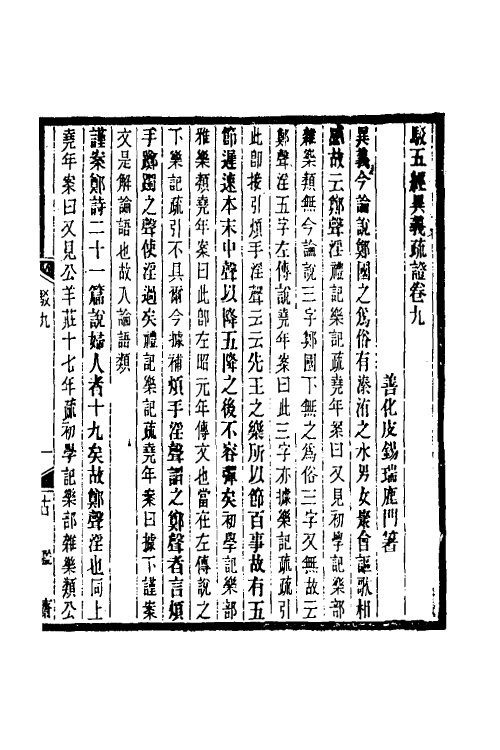 駁五經異義疏證卷九
善化皮錫瑞鹿門著
異義今論說鄭國之爲俗有溱洧之水男女聚會謳歌相
感故云鄭聲淫禮記樂記疏堯年案曰又見初學記樂部
雜樂類無今論說三字鄭國下無之爲俗三字又無故云
鄭聲淫五字左傳說堯年案曰此三字亦據樂記疏疏引
此即接引煩手淫聲云云先王之樂所以節百事故有五
節遲速本末中聲以降五降之後不容彈矣初學記樂部
雅樂類堯年案曰此卽左昭元年傳文也當在左傳說之
下樂記疏引不具爾今據補煩手淫聲謂之鄭聲者言煩
手躑躅之聲使淫過矣禮記樂記疏堯年案曰據下謹案
文是解論語也故入論語類
謹案鄭詩二十一篇說婦人者十九矣故鄭聲淫也同上
堯年案曰又見公羊莊十七年疏初學記樂部雜樂類公
駁九
一
古鑑齋